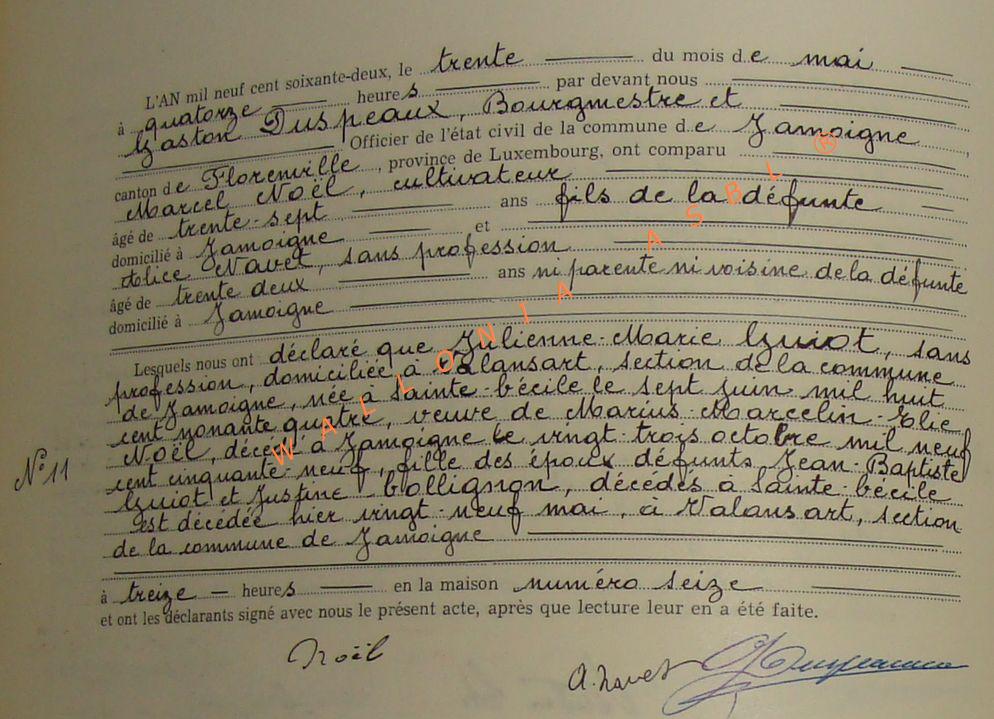 L'AN mil neuf cent soixante-deux, le trente du mois de mai
à quatorze heures par devant nous
Gaston Duspeaux, Bourgmestre et
Officier de l'état civil de la commune de Jamoigne,
canton de Florenville, province de Luxembourg, ont comparu
Marcel Noël, cultivateur
âgé de trente-sept ans fils de la défunte
domicilié à Jamoigne et
Alice Navet, sans profession
âgé de trente deux ans ni parente ni voisine de la défunte
domicilié à Jamoigne
Lesquels nous ont déclaré que Julienne-Marie Guiot, sans
profession, domiciliée à Valansart, section de la commune
de Jamoigne, née à Sainte-Cécile le sept juin mil huit
cent nonante quatre, veuve de Marius-Marcelin-Elie
Noël, décédé à Jamoigne le vingt-trois octobre mil neuf
N° 11
cent cinquante-neuf, fille des époux défunts Jean-Baptiste
Guiot et Justine Collignon, décédés à Sainte-Cécile
est décédée hier vingt-neuf mai, à Valansart, section
de la commune de Jamoigne
à treize heures en la maison numéro seize
et ont les déclarants signé avec nous le présent acte, après que lecture leur en a été faite.
Noël
A. Navet
WALLONIA ASBL ®